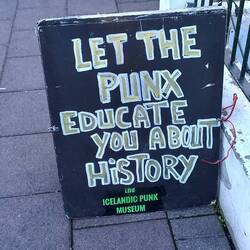 LET THE
PUNX
EDUCATE
YOU ABOUT
HiSTORY
the
ICELANDIC PUNK
MUSEUM